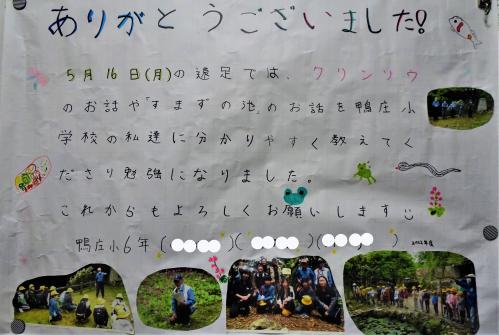 ありがとうございました!
5月16日(月)の遠足では、クリンソウ
のお話や「すまずの池」のお話を鴨庄小
学校の私達に分かりやすく教えてく
ださり勉強になりました。
これからもよろしくお願いします
鴨庄小6年( )( )( ) 2022年度